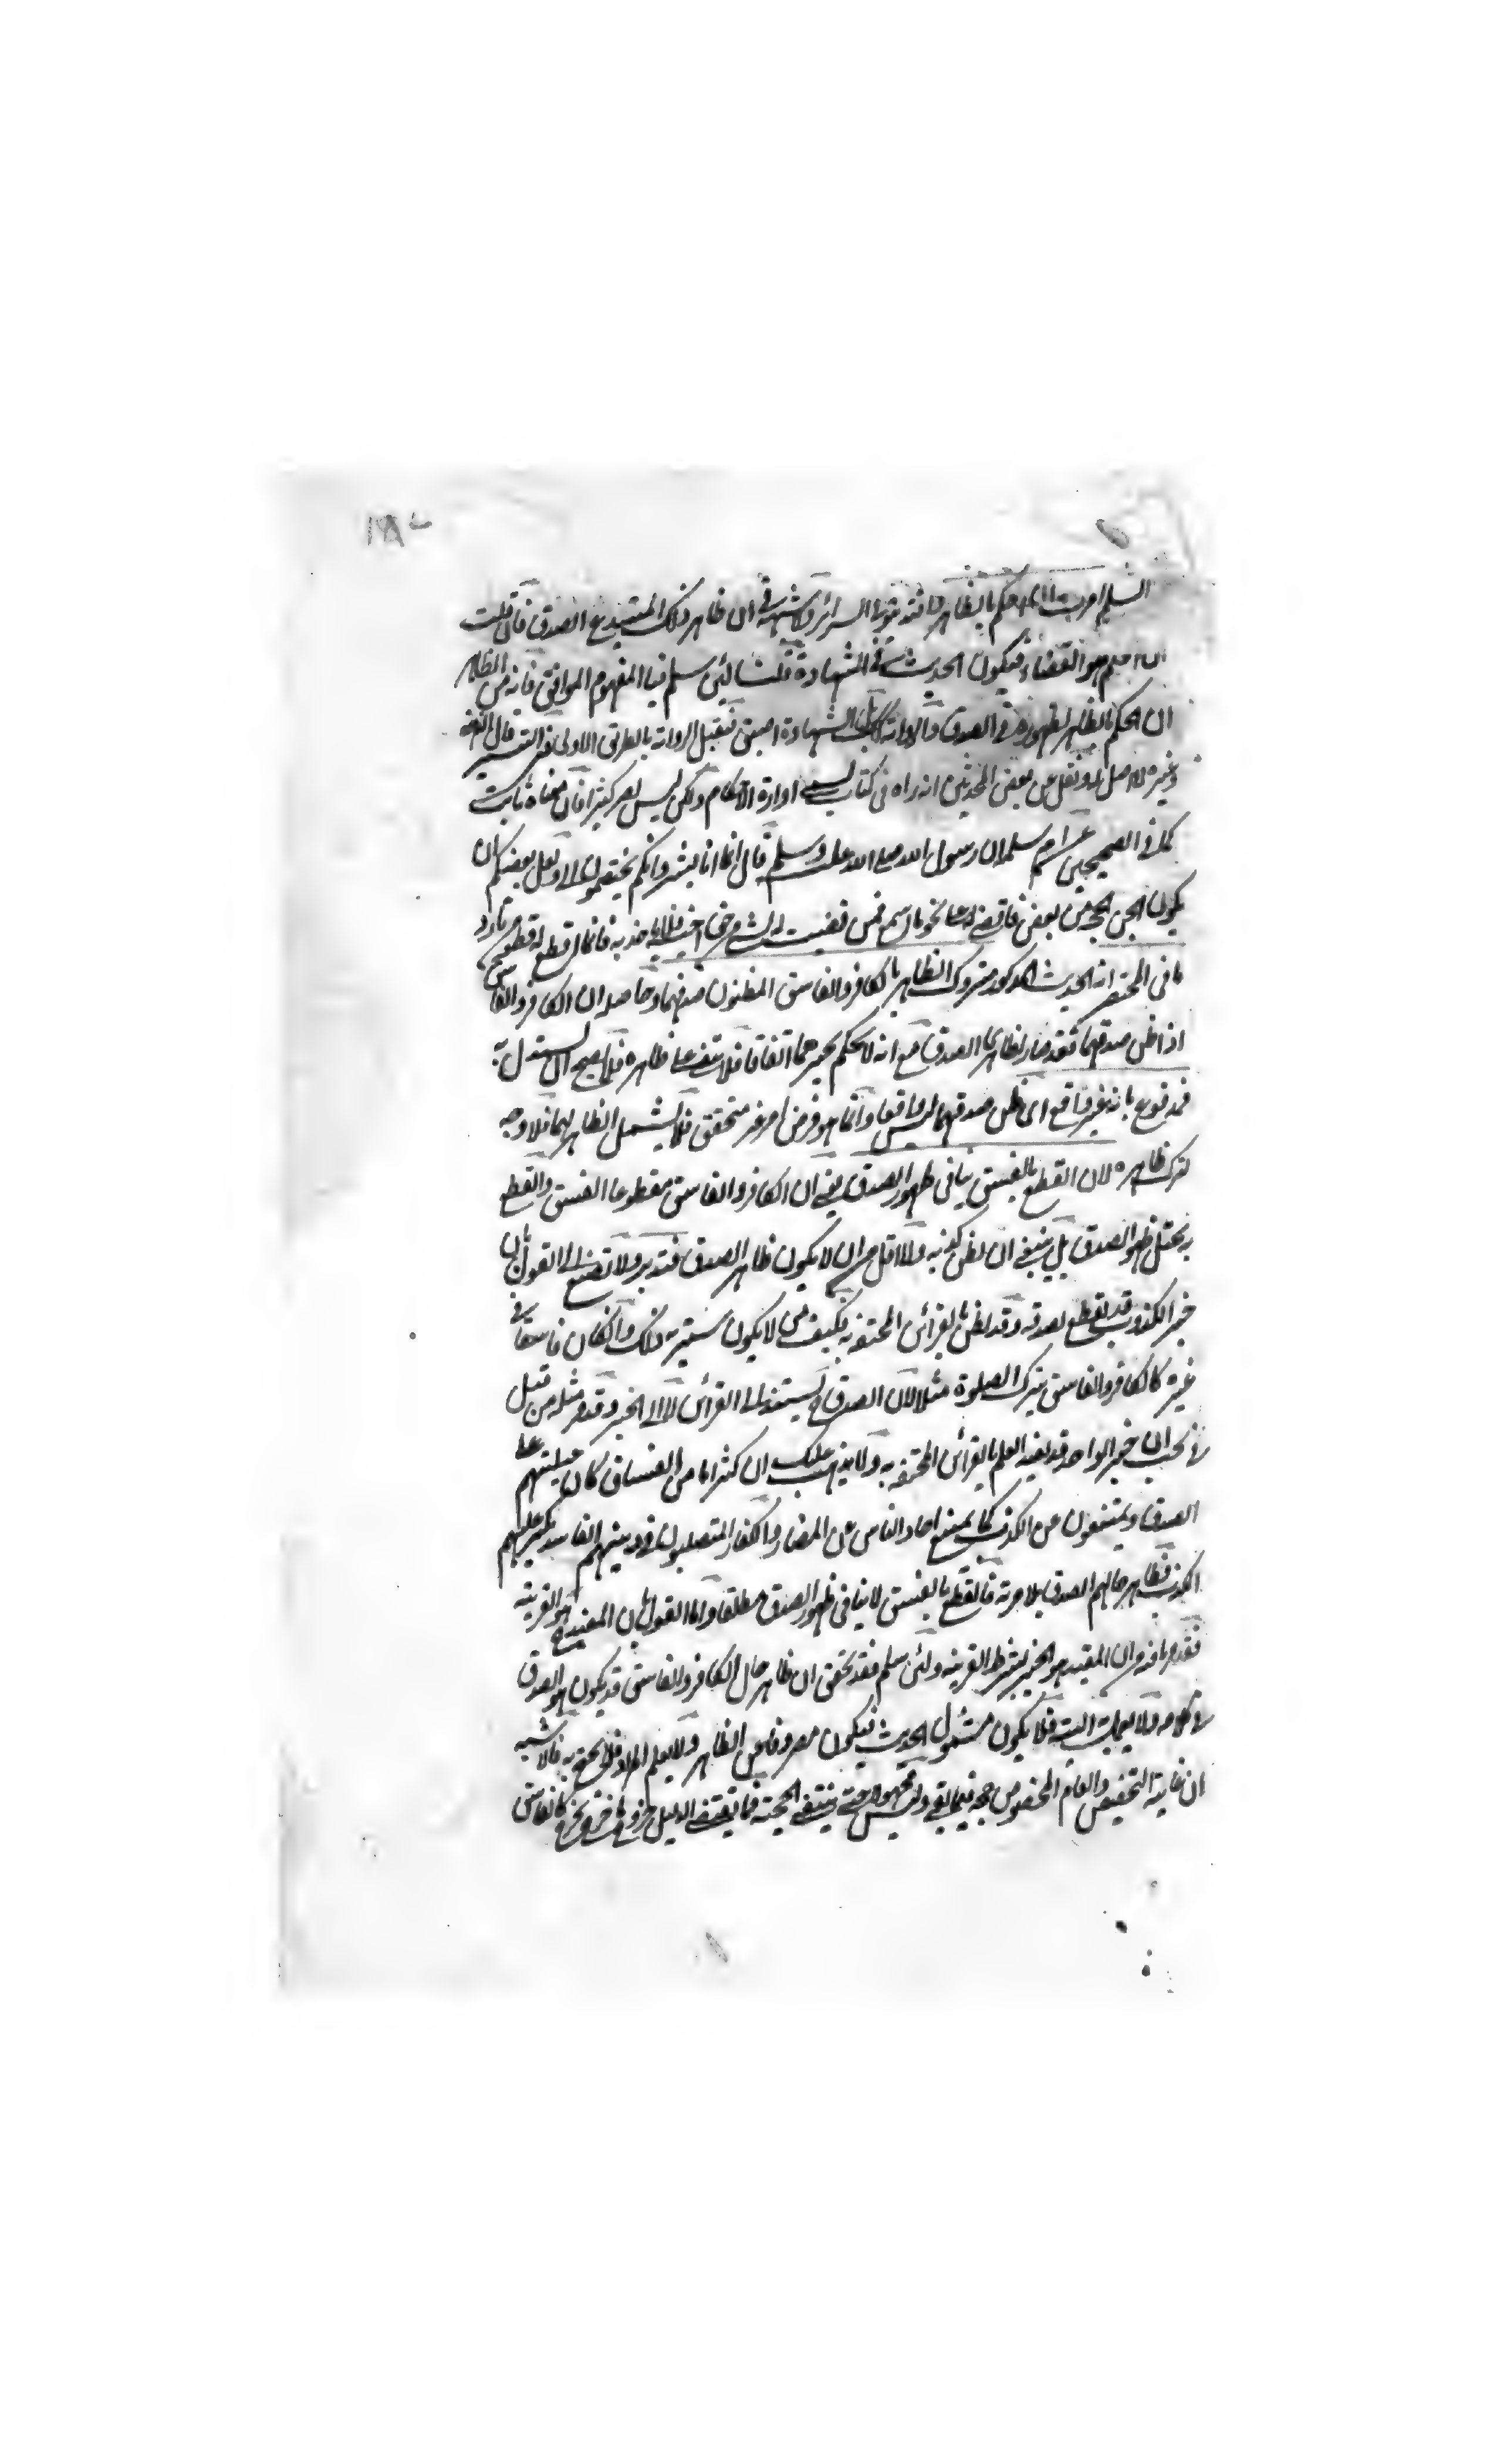 ١٨٧
السلم امرت ان احكم بالظاهر والله يتولى السرائر ولا شبهة في ان ظاهر ذلك المبتدع الصدق فان قلت
ان الحكم هو القضاء فيكون الحديث في الشهادة قلت لئن سلم فيا المفهوم الموافق فانه من الظاهر
ان الحكم بالظاهر لظهوره في الصدق والرواية كذلك بل الشهادة اضيق فتقبل الرواية بالطريق الاولى في التيسير قال الذهبي
وغيره لا اصل له ونقل عن بعض المحدثين انه راه في كتاب يسمى ادارة الاحكام ولكن ليس يضر كثيرا فان معناه ثابت
كما في الصحيحين عن ام سلمة ان رسول الله صلى الله عليه وسلم قال انما انا بشر وانكم تختصمون الي ولعل بعضكم ان
يكون الحن بحجته من بعض فاقضي له على نحو ما اسمع فمن قضيت له بشيء من حق اخيه فلا ياخذ به فانما اقطع له قطعة من نار ورد
ما في المختصر انه الحديث المذكور متروك الظاهر بالكافر والفاسق المظنون صدقهما وحاصله ان الكافر والفاسق
اذا ظن صدقهما فقد صار ظاهرا الصدق مع انه لا يحكم بخبرهما اتفاقا فلا يبقى على ظاهره فلا يصح الاستدلال به
فمدفوع بانه غير واقع اي ظن صدقهما ليس واقعا وانما هو فرض امر غير متحقق فلا يشمل الظاهر لهما فلا وجه
لترك ظاهره لان القطع بالفسق ينافي ظهور الصدق يعني ان الكافر والفاسق مقطوعا الفسق والقطع
به يختل ظهور الصدق بل ينبغي ان يظن كذبه والا اقل من ان لا يكون ظاهر الصدق فتدبر ولا تصغ الى القول بان
خبر الكذوب قد يقطع بصدقه وقد يظن بالقرائن المحتفة فكيف من لا يكون سيرته ذلك وان كان فاسقا في
غيره كالكافر والفاسق بترك الصلوة مثلا لان الصدق ح يستند الى القرائن لا الى الخبر وقد مر مثله من قبل
في بحث ان خبر الواحد قد يفيد العلم بالقرائن المحتفة به ولا يذهب عليك ان كثيرا ما من الفساق كان جبلتهم على
الصدق ويمتنعون عن الكذب كما يمتنع احاد الناس عن المضار والكفار المتصلبون في دينهم الفاسد يكبر عليهم
الكذب فظاهر حالهم الصدق بلا مرية فالقطع بالفسق لا ينافي ظهور الصدق مطلقا واما القول بان المفيد ح هو القرينة
فقد مر ما فيه وان المفيد هو الخبر بشرط القرينة ولئن سلم فقد تحقق ان ظاهر حال الكافر والفاسق قد يكون هو الصدق
في كلامه ولا يعمل به البتة فلا يكون مشمول الحديث فيكون مصروفا عن الظاهر ولا يعلم المراد فلا يحتج به فالاشبه
ان غايته التخصيص والعام المخصوص حجة فيما بقي وليس مجهولا حتى ينتفي الحجية فما يقتضي الدليل خروجه فخرج كالفاسق